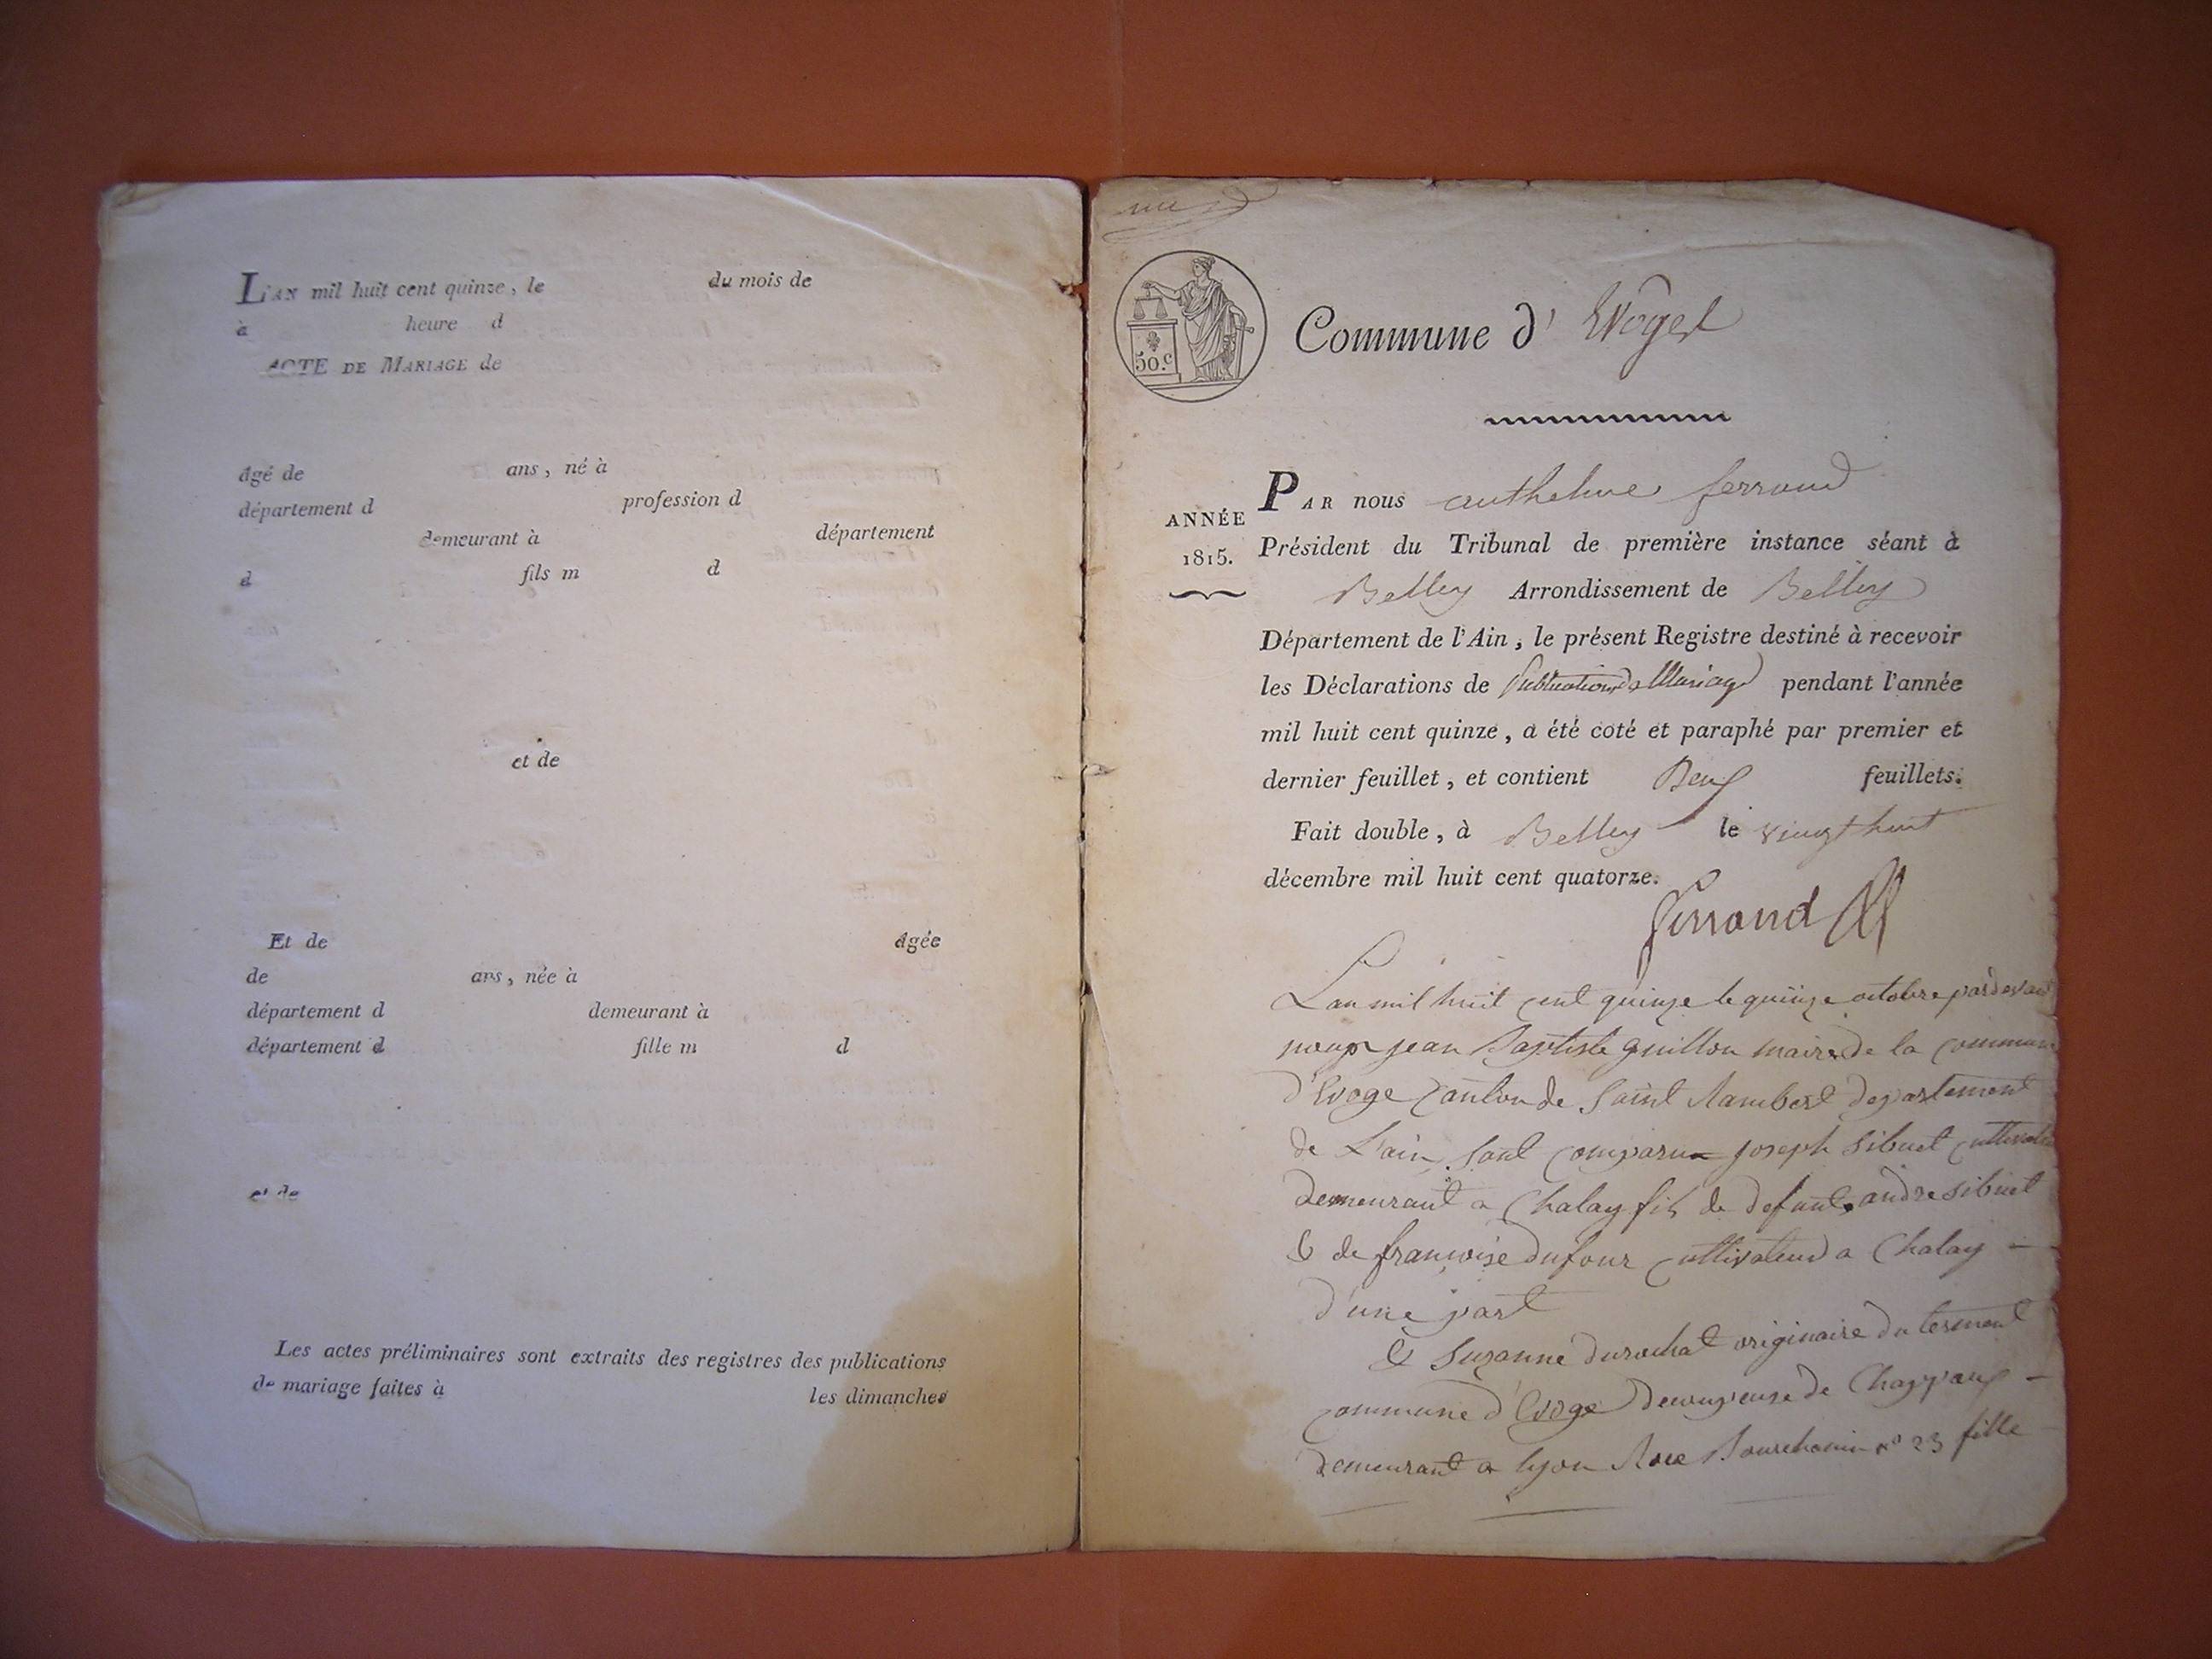 L'AN mil huit cent quinze, le du mois de
à heure d
ACTE DE MARIAGE de
âgé de ans, né à
département d profession d
demeurant à département
d fils m d
et de
Et de âgée
de ans, née à
département d demeurant à
département d fille m d
et de
Les actes préliminaires sont extraits des registres des publications
de mariage faites à les dimanches
50.c
Commune d' Evoges
ANNÉE
1815.
PAR nous anthelme ferrand
Président du Tribunal de première instance séant à
Belley Arrondissement de Belley
Département de l'Ain, le présent Registre destiné à recevoir
les Déclarations de Publications de Mariage pendant l'année
mil huit cent quinze, a été coté et paraphé par premier et
dernier feuillet, et contient feuillets.
Fait double, à Belley le vingt huit
décembre mil huit cent quatorze.
ferrand
L'an mil huit cent quinze le quinze octobre pardevant
nous jean Baptiste guillon maire de la commune
d'Evoge canton de saint Rambert departement
de L'ain, sont comparu joseph sibuet cultivateur
demeurant a Chaley fils de defunt andre sibuet
& de francoise dufour cultivateur a Chaley
d'une part
& Suzanne durochat originaire du
commune d'Evoge de
demeurant a lyon Rue Bourchanin n° 23 fille